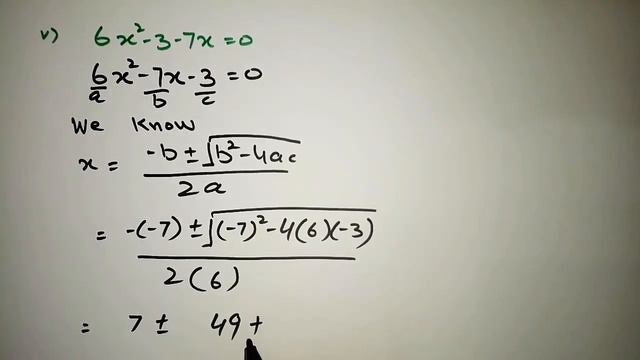 v) 6x²-3-7x=0
6x²-7x-3=0
a b c
We know
x = -b ± √b²-4ac
2a
= -(-7) ± √(-7)²-4(6)(-3)
2(6)
= 7 ± 49+